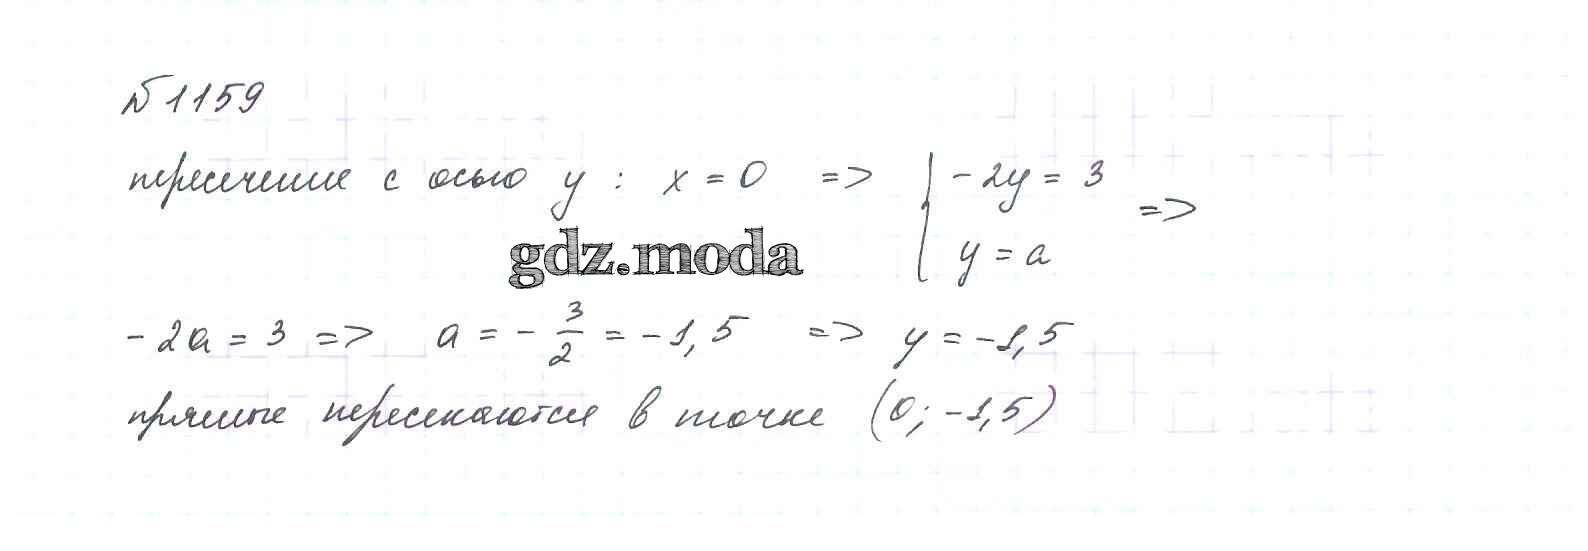 №1159
пересечение с осью y: x = 0 => { -2y = 3
y = a =>
gdz.moda
-2a = 3 => a = -3/2 = -1,5 => y = -1,5
прямые пересекаются в точке (0; -1,5)